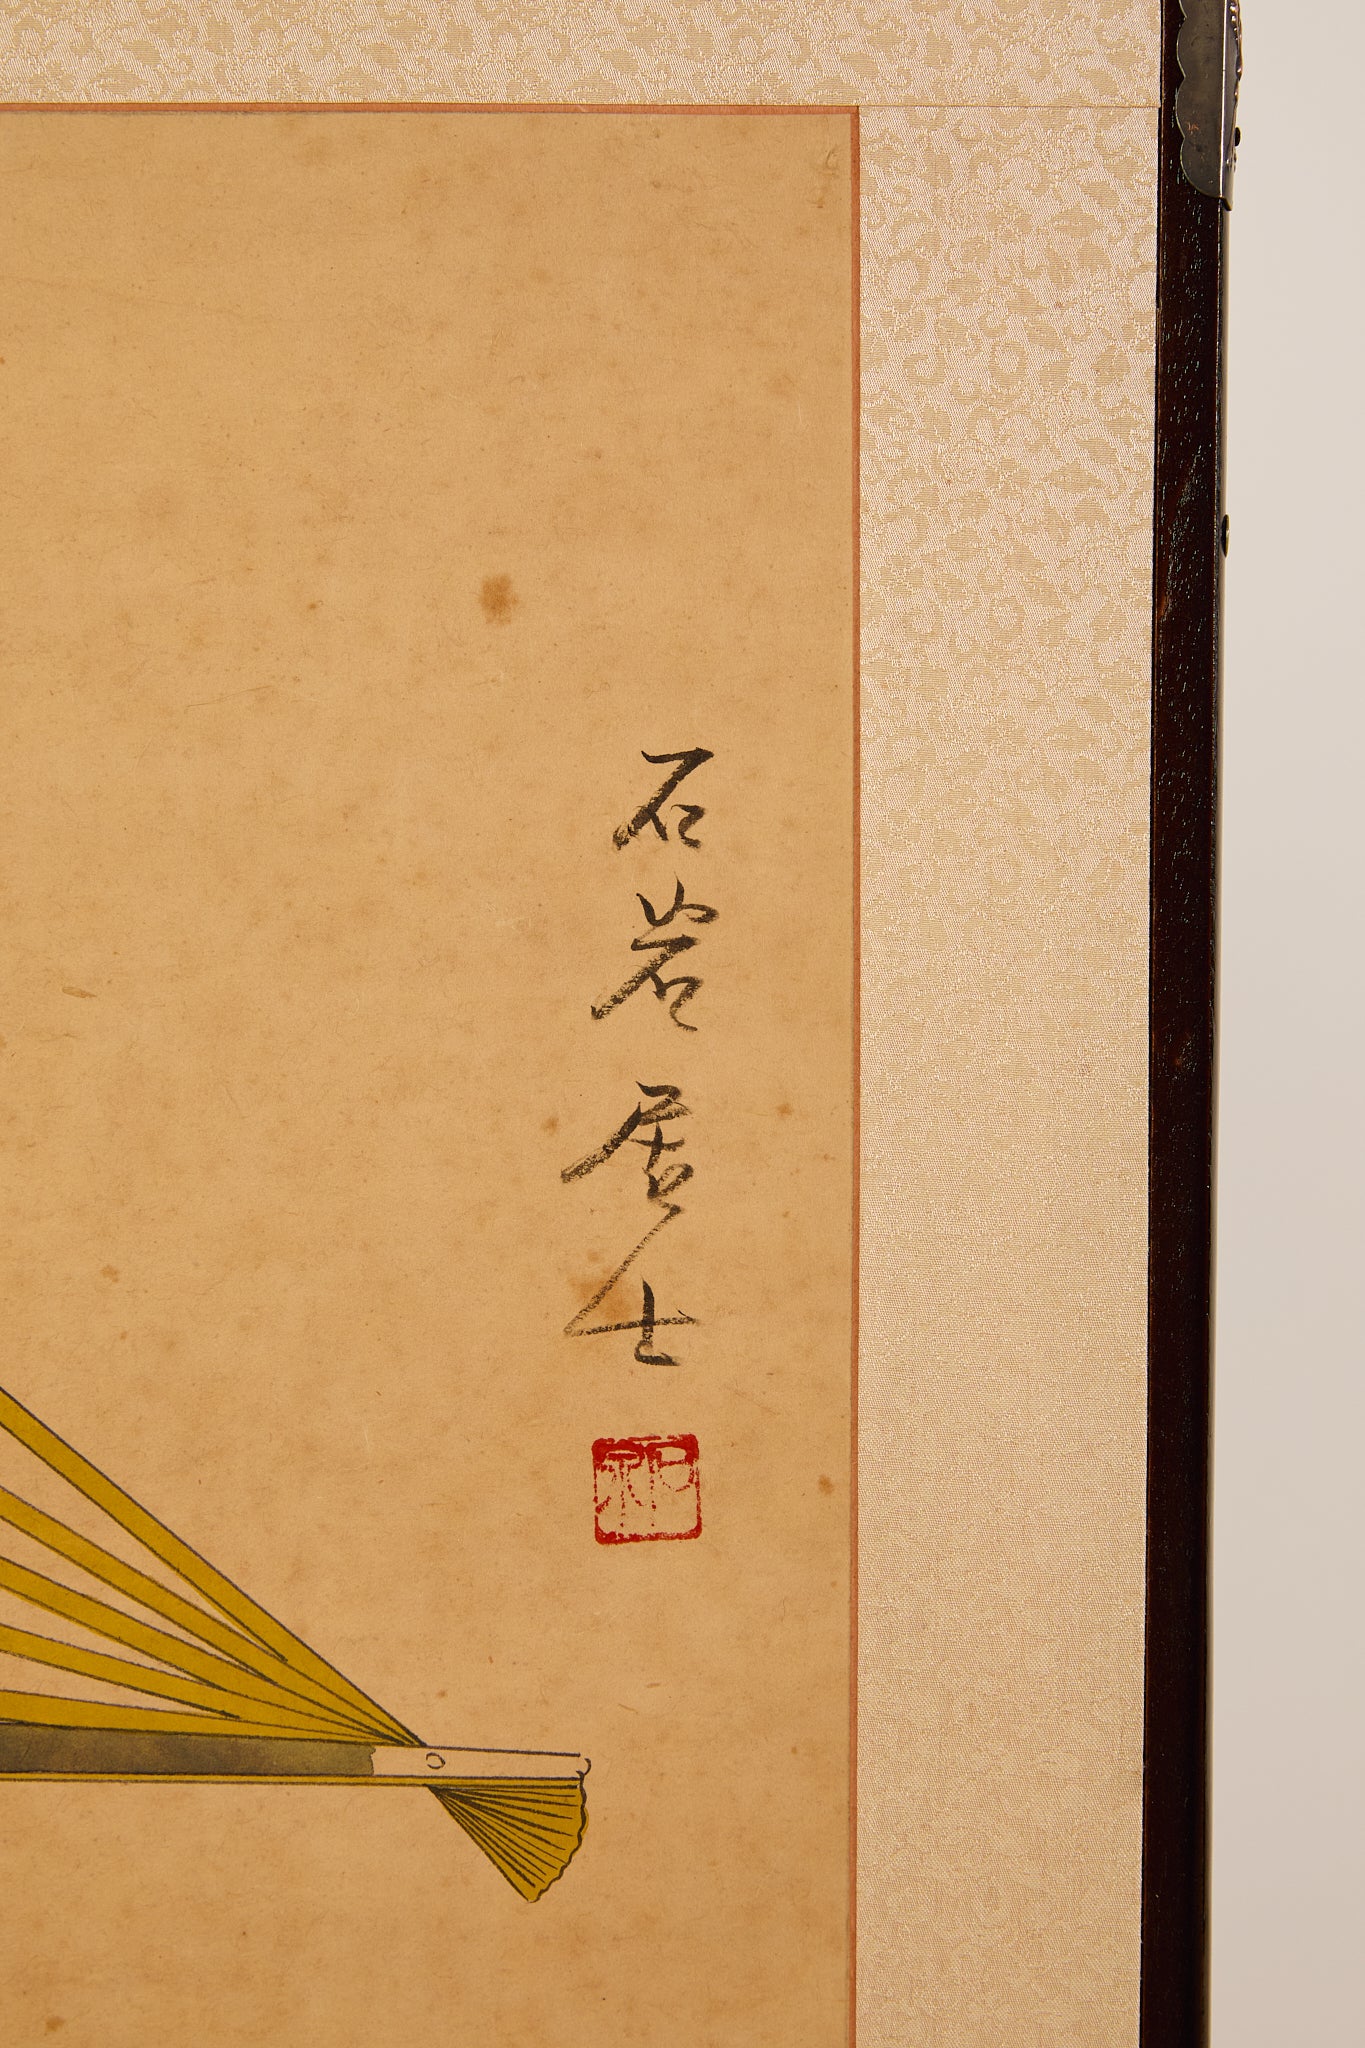 石岩居士